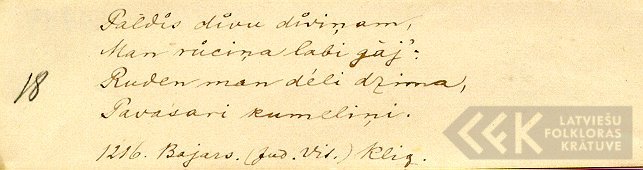 Paldis divu diviņam,
Man růciņa labi gāj':
18
Ruden man dēli dzima,
Pavasari kumeliņi.
1216. Bajars. (Jud. Vis.) Kliņ.
LATVIEŠU
FOLKLORAS
KRĀTUVE